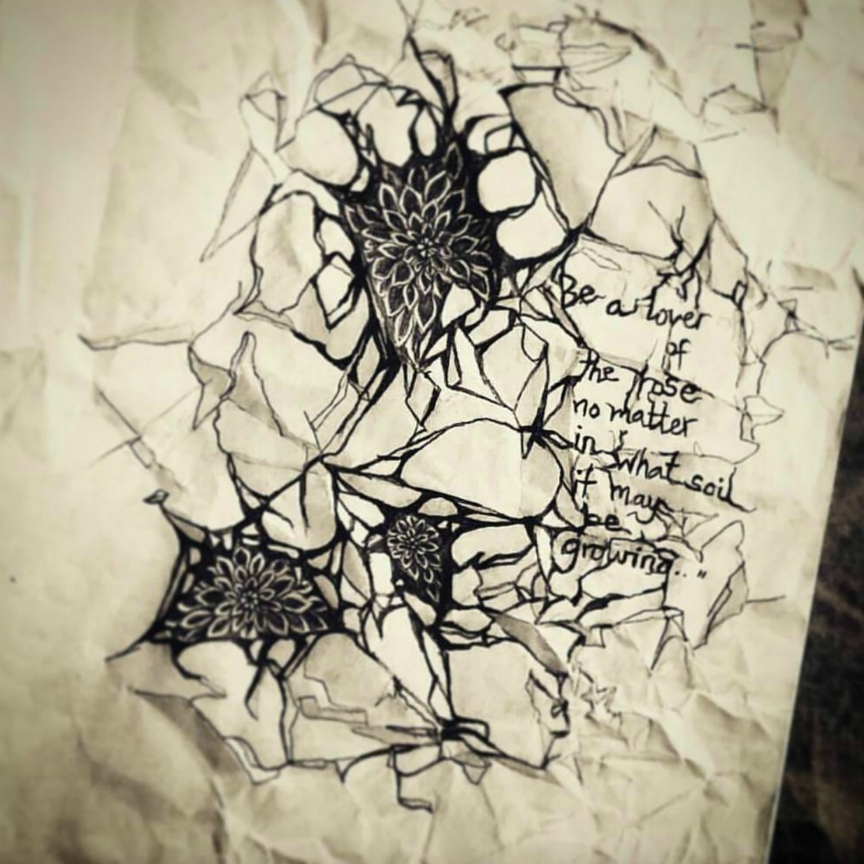 Be a lover
of
the rose
no matter
in what soil
it may
be
growing.."